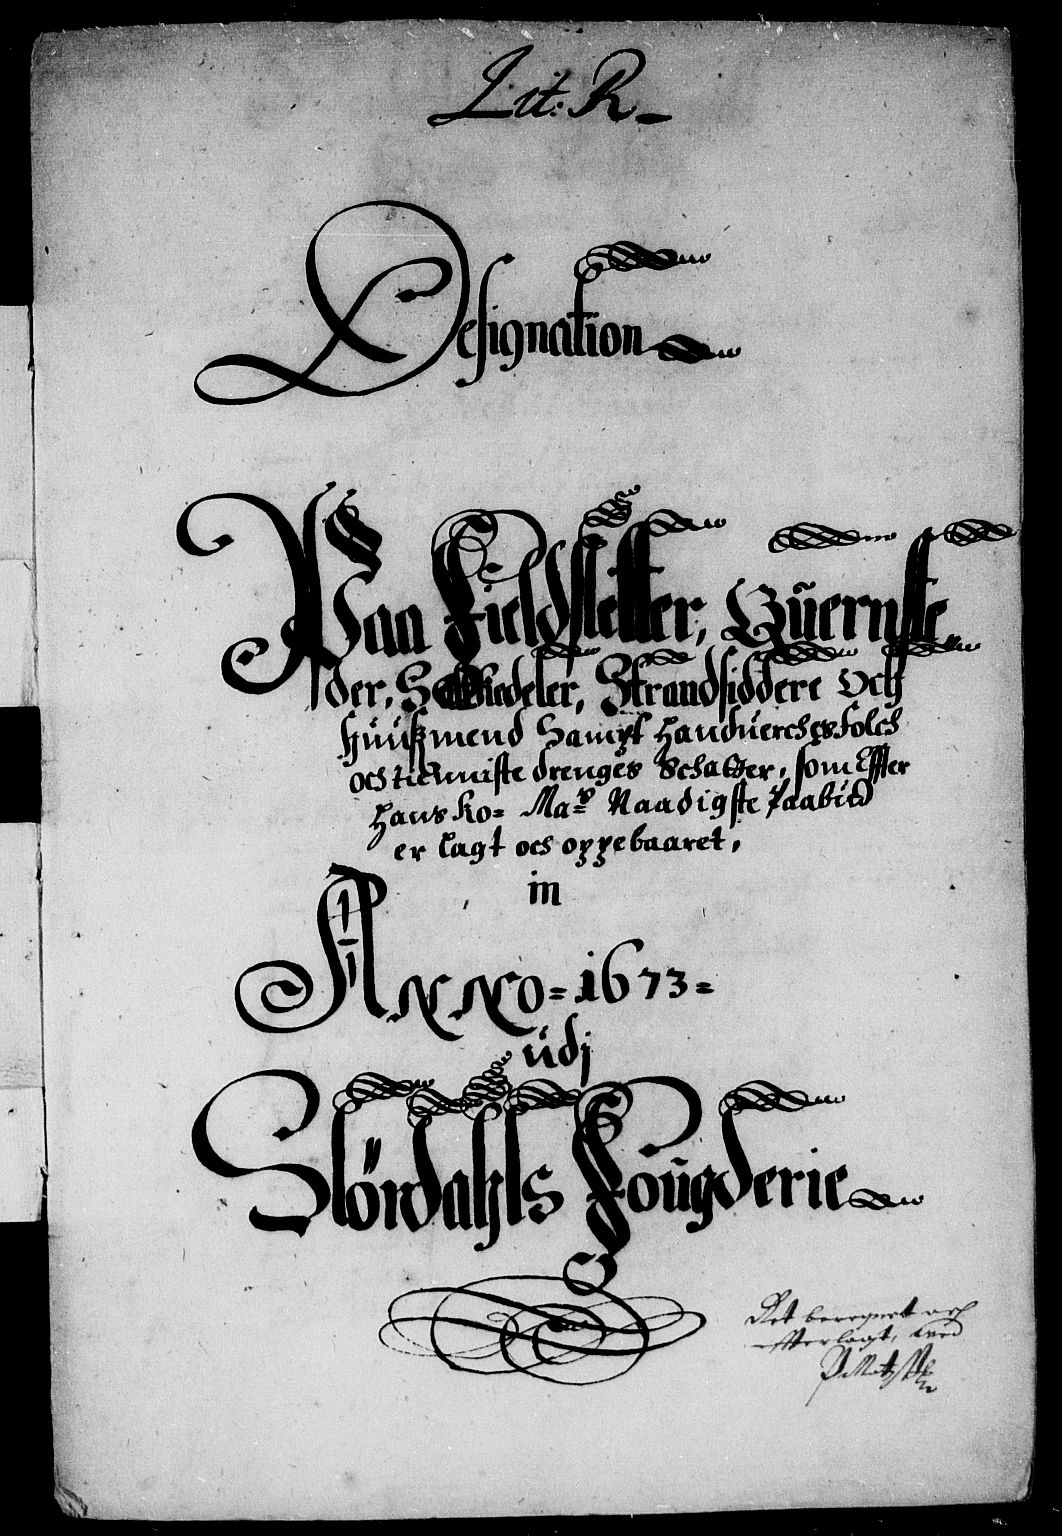 Lit: R
Designation
Paa Fieldsletter, Qüernste
der, Strandsiddere Och
Hüüsmend Sampt Handüerchs Folch
och tienniste drenges Schatter, som Effter
Hans Ko= Maÿs Naadigste Paabüd
er lagt och oppebaaret,
in
Anno=1673=
üdj
Stördahls Fougderie
Ret beregnet och
effterlagt,